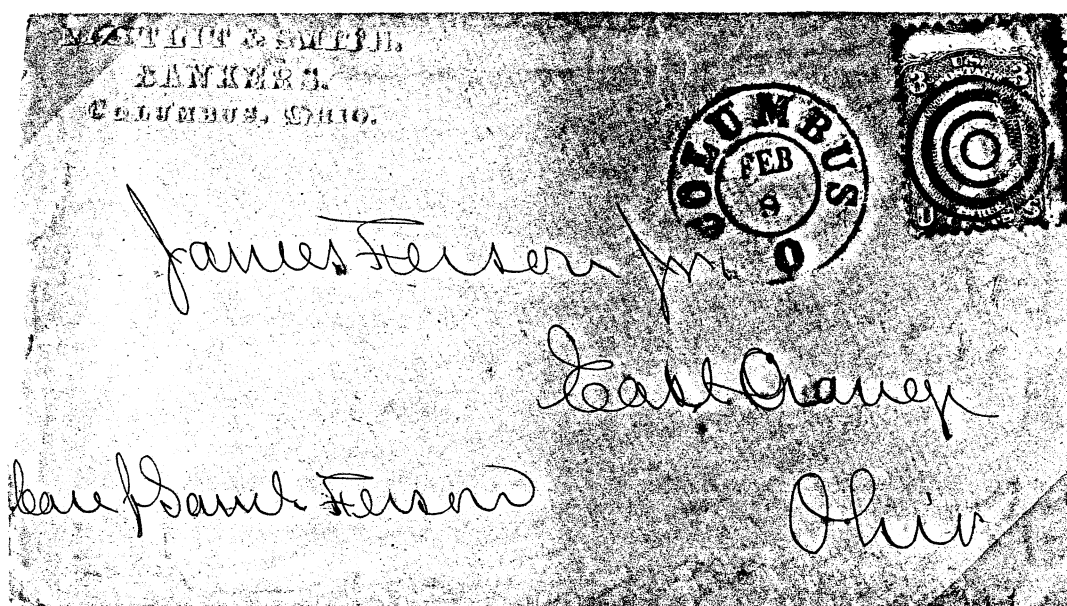 & SMITH,
BANKERS.
COLUMBUS, OHIO.
COLUMBUS O
FEB
U.S.
3 3
James Ferson jnr.
East Orange
Ohio
Care of Saml. Ferson